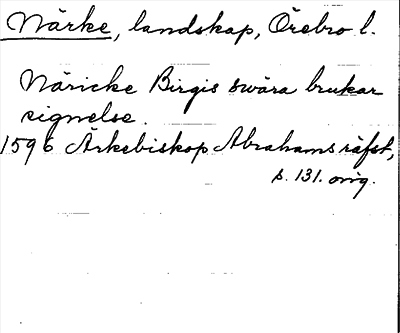 Närke, landskap, Örebro l.
Näricke Birgis swära brukar
signelse.
1596 Ärkebiskop Abrahams räfst,
s. 131. orig.